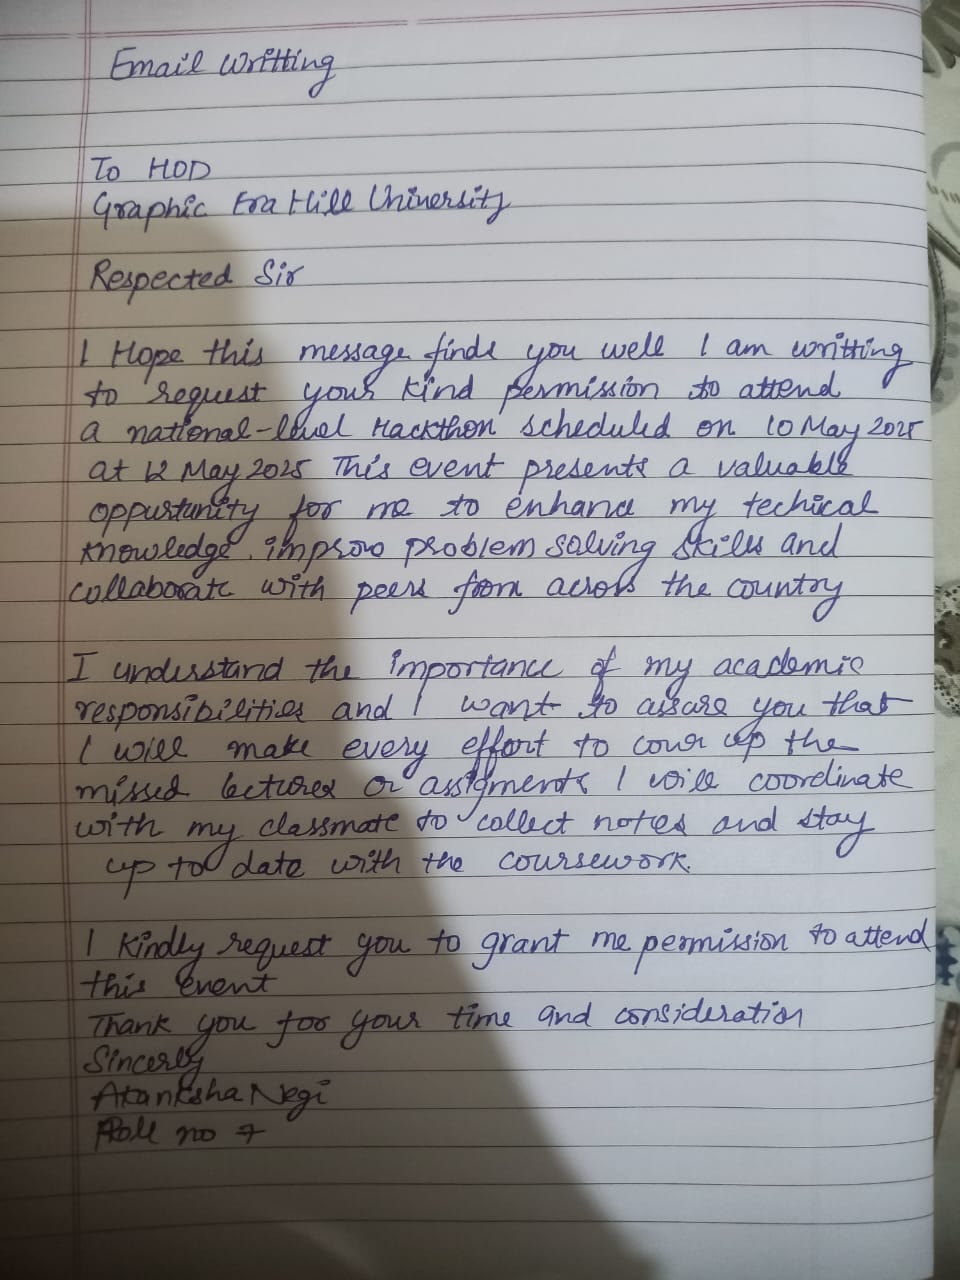 Email Writting
To HOD
Graphic Era Hill University
Respected Sir
I Hope this message finds you well I am writting
to request your kind permission to attend
a national-level Hackthon scheduled on 10 May 2025
at 12 May 2025 This event presents a valuable
oppurtunity for me to enhance my techical
knowledge, improve problem solving skills and
collaborate with peers from across the country
I understand the importance of my academic
responsibilities and I want to assure you that
I will make every effort to cover up the
missed lectures or assigments I will coordinate
with my classmate to collect notes and stay
up to date with the coursework.
I kindly request you to grant me permission to attend
this event
Thank you for your time and consideration
Sincerly
Akanksha Negi
Roll no 7